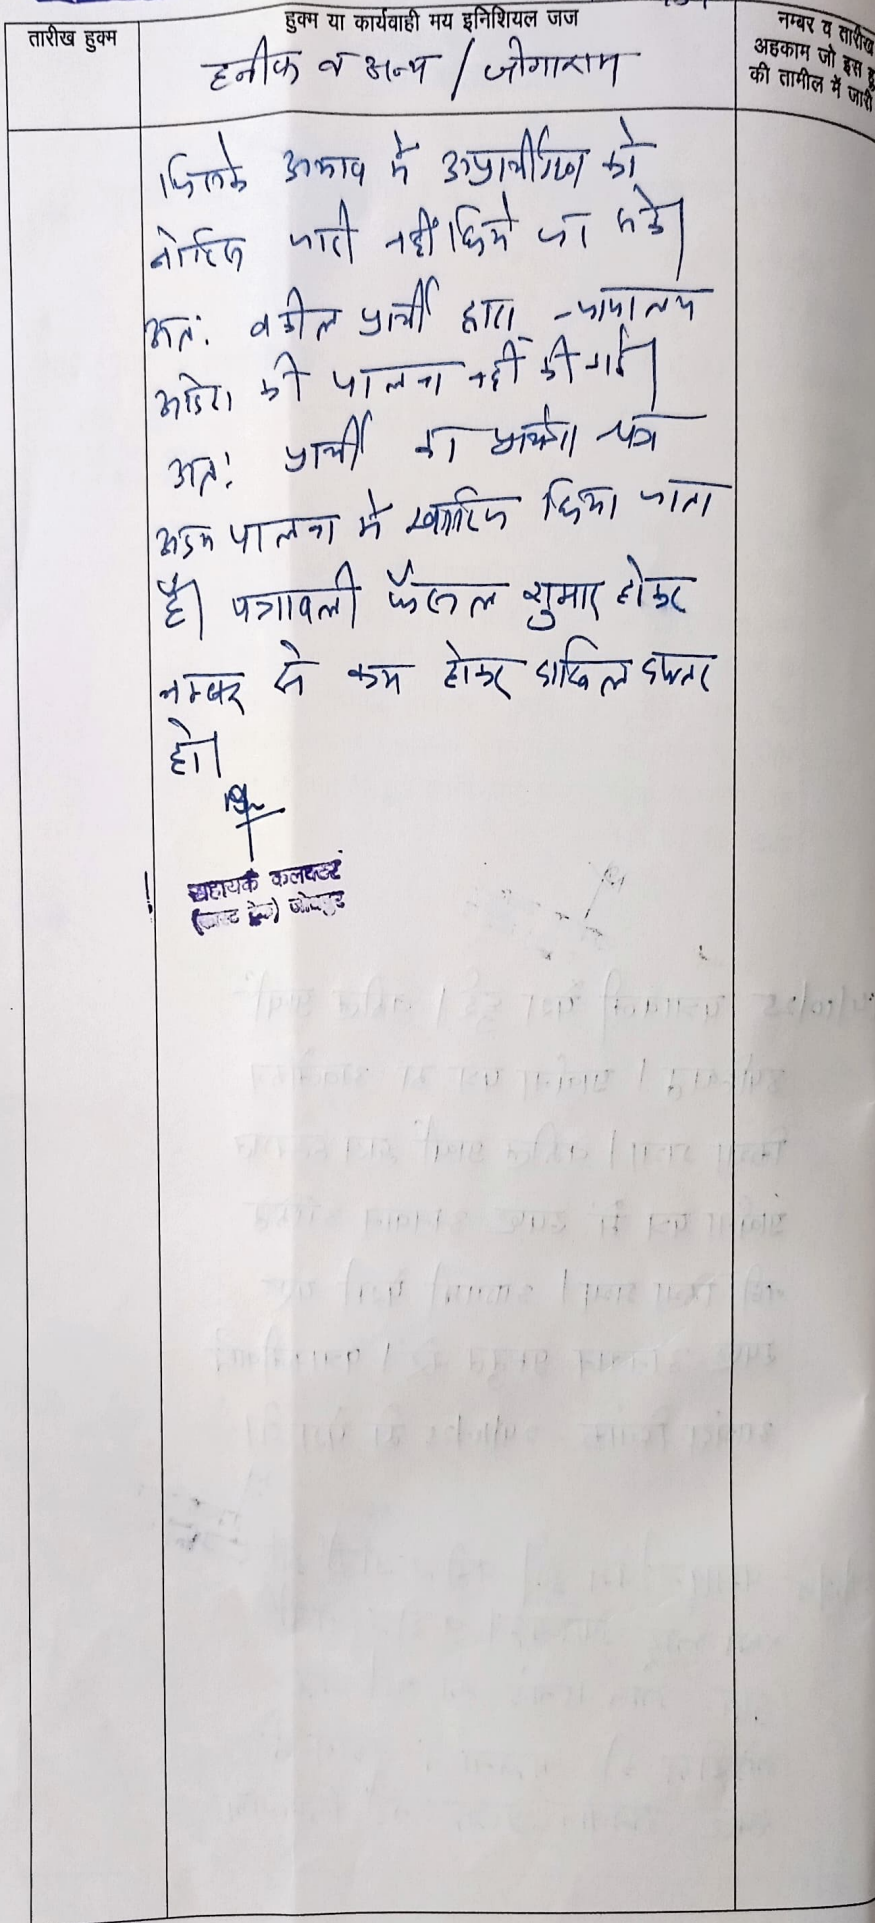 तारीख हुक्म
हुक्म या कार्यवाही मय इनिशियल जज
नम्बर व तारीख
अहकाम जो इस हु
की तामील में जारी
हनीफ व अन्य / जोगाराम
जिसके अभाव में अप्रार्थीगण को
नोटिस जारी नहीं किये जा सके।
अतः वकील प्रार्थी द्वारा न्यायालय
आदेश की पालना नहीं की गई।
अतः प्रार्थी का प्रार्थना पत्र
अदम पालना में खारिज किया जाता
है। पत्रावली फैसल शुमार होकर
नम्बर से कम होकर दाखिल दफ्तर
हो।
सहायक कलक्टर